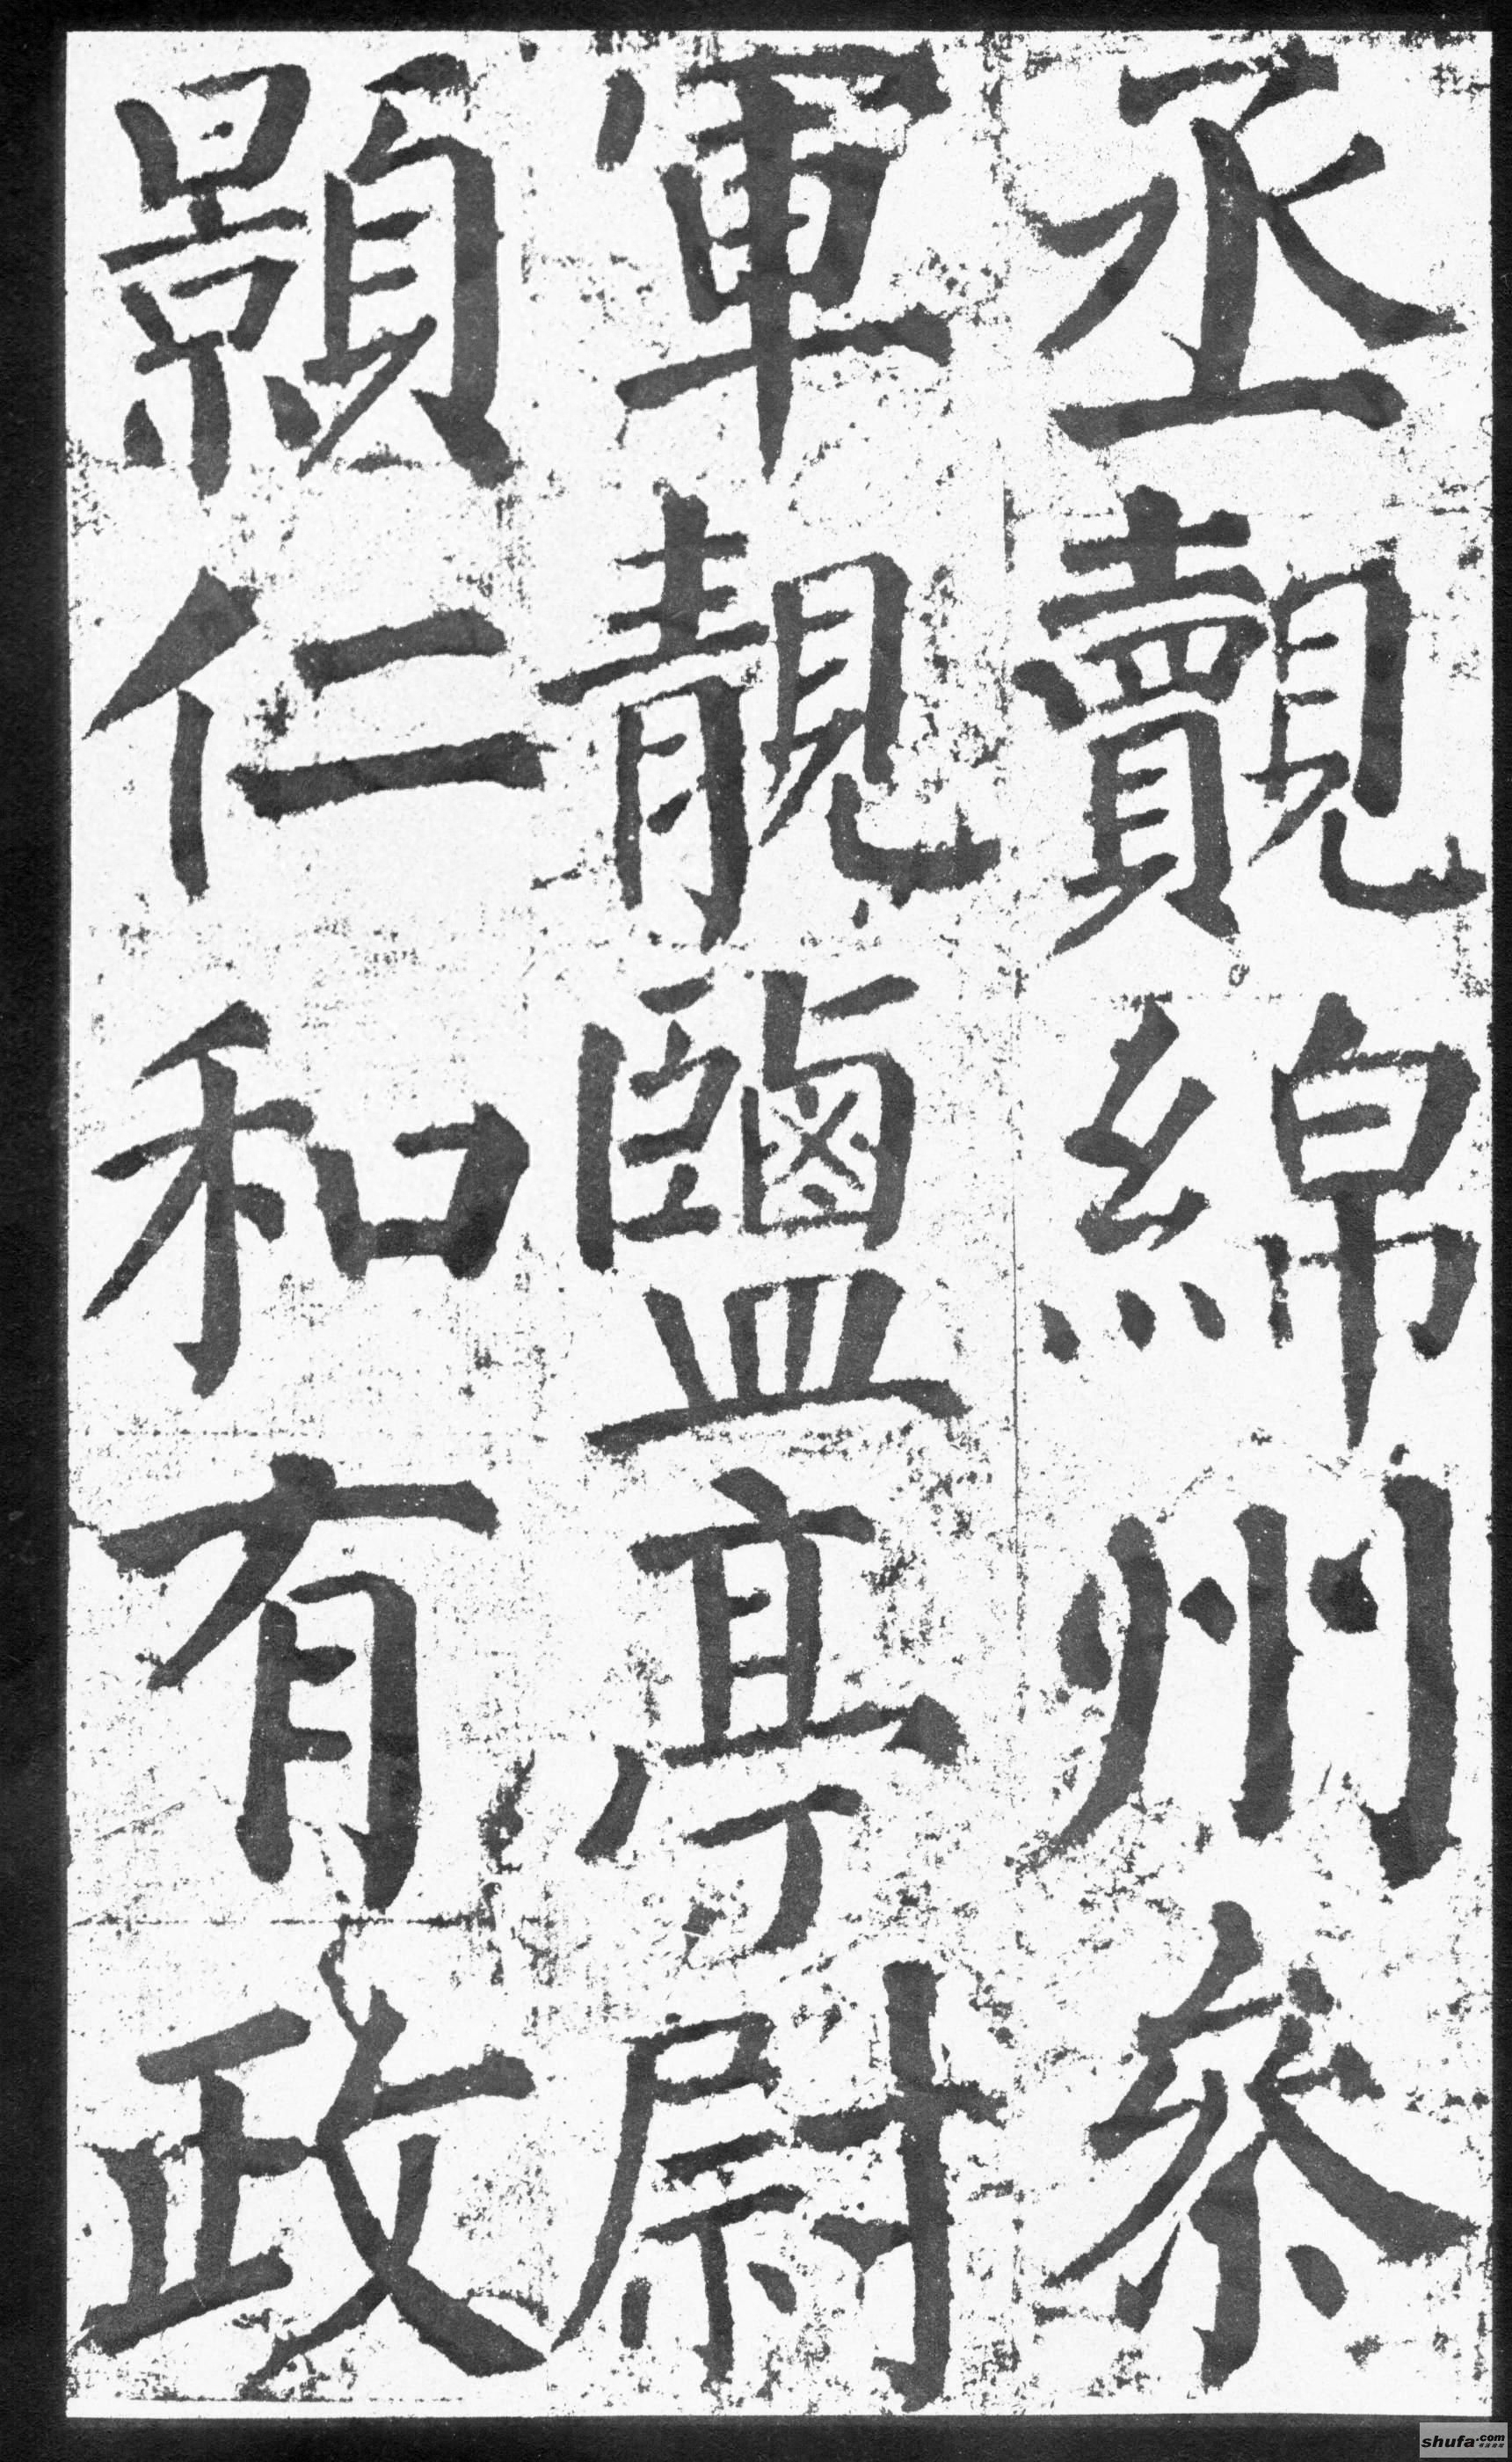 丞覿綿州參
軍靚鹽亭尉
顥仁和有政
shufa.com